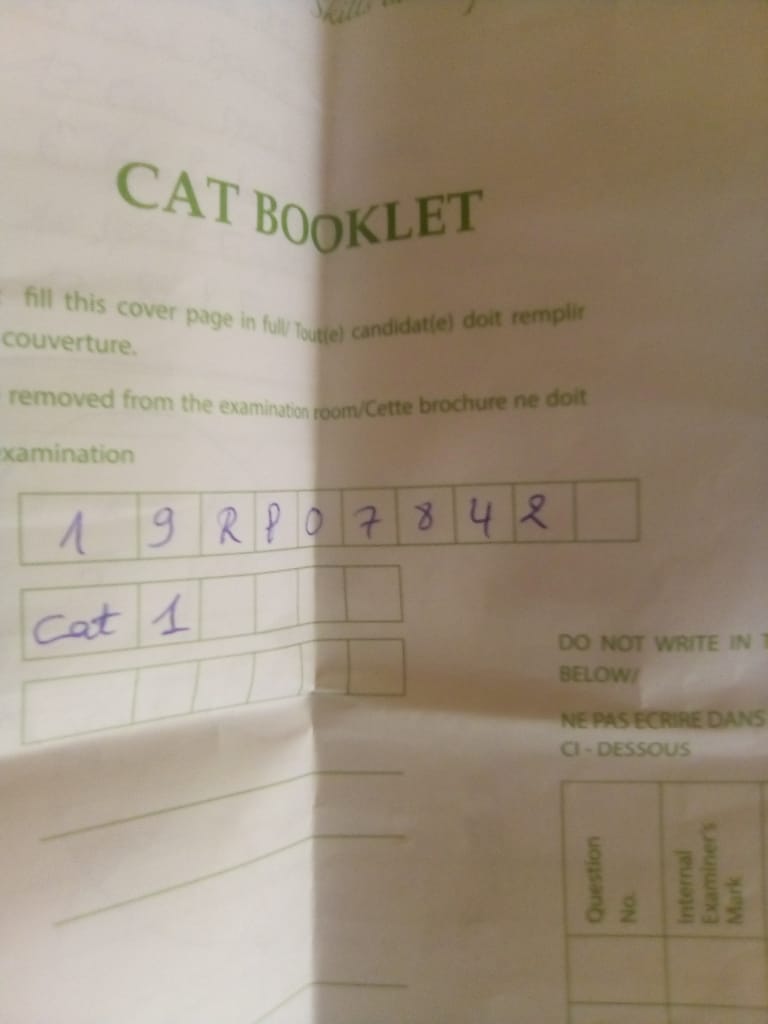 Skills
CAT BOOKLET
fill this cover page in full/ Tout(e) candidat(e) doit remplir
couverture.
removed from the examination room/Cette brochure ne doit
xamination
19RP07842
Cat 1
DO NOT WRITE IN T
BELOW/
NE PAS ECRIRE DANS
CI - DESSOUS
Question No.
Internal Examiner's Mark